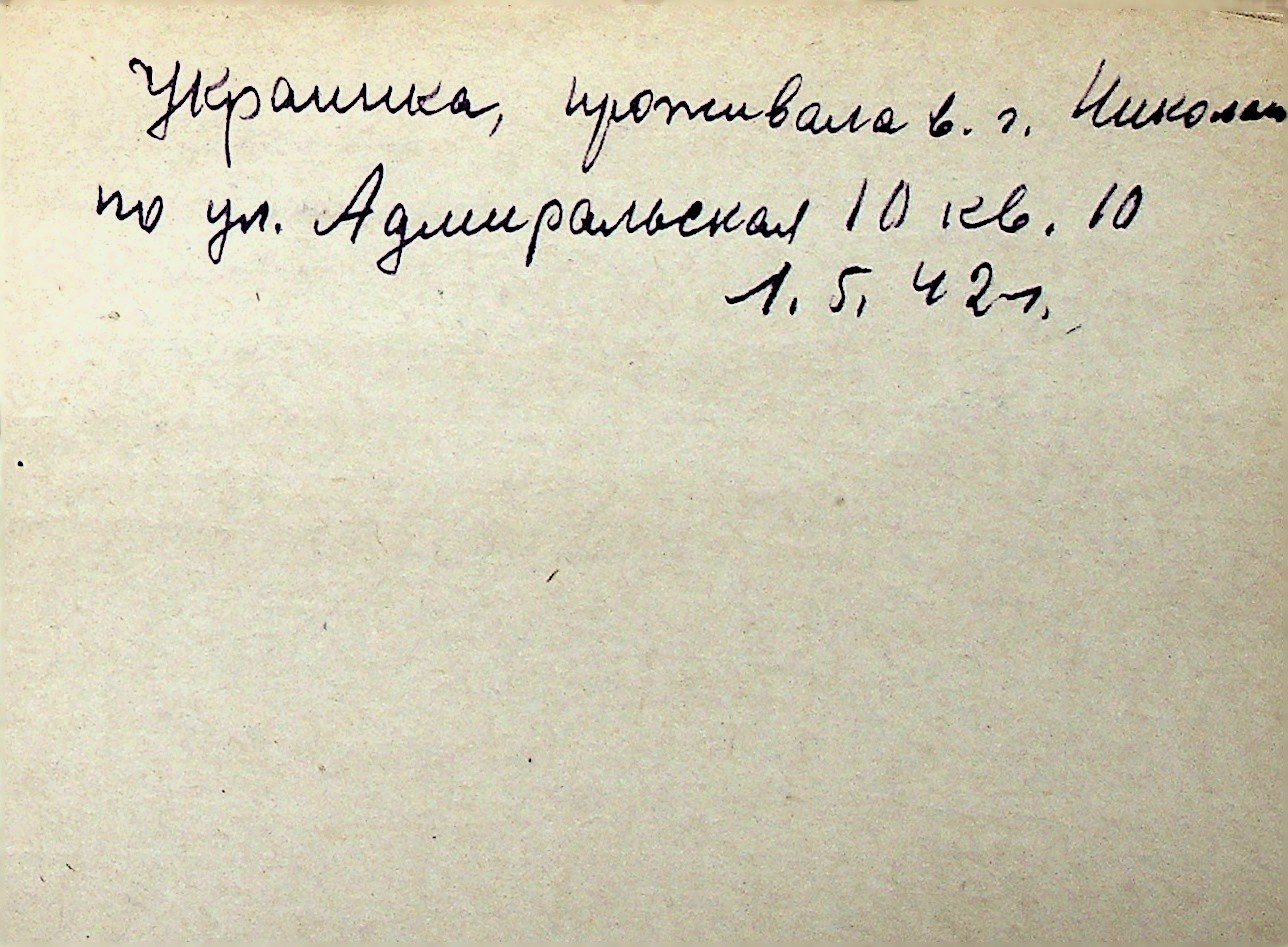 Украинка, проживала в. г. Никола
по ул. Адмиральская 10 кв. 10
1. 5. 42 г.